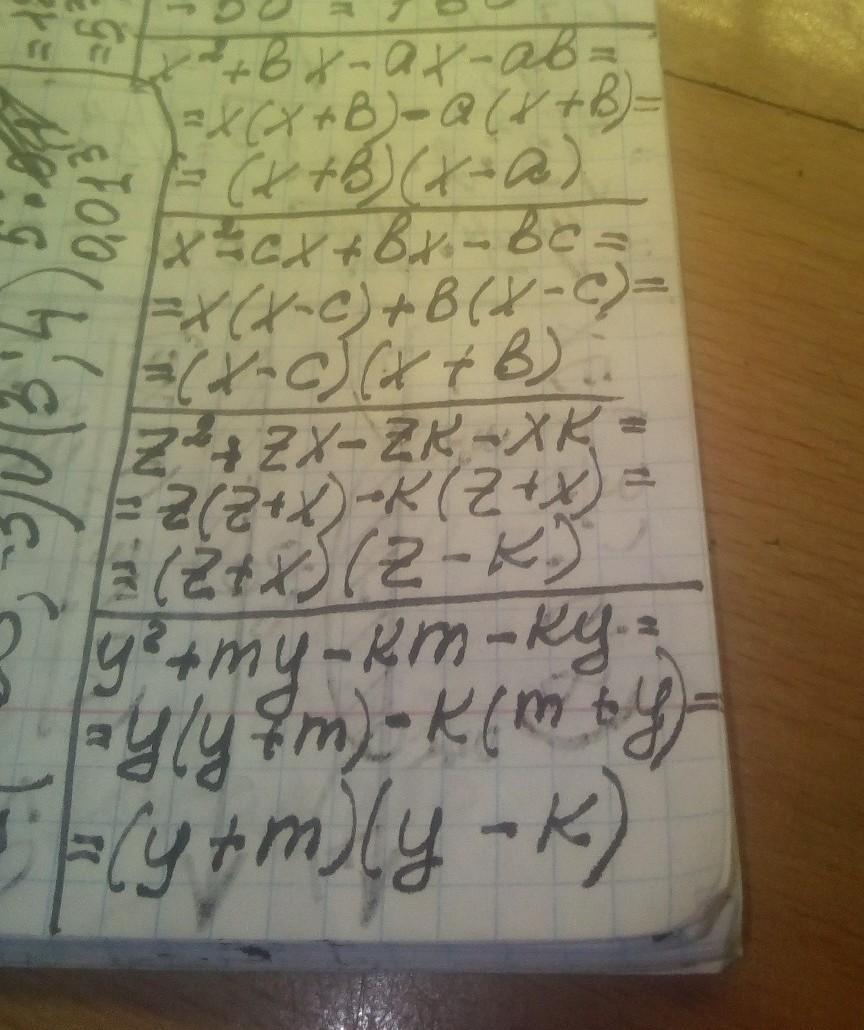 x² + bx - ax - ab =
= x(x + b) - a(x + b) =
= (x + b)(x - a)
x² - cx + bx - bc =
= x(x - c) + b(x - c) =
= (x - c)(x + b)
z² + zx - zk - xk =
= z(z + x) - k(z + x) =
= (z + x)(z - k)
y² + my - km - ky =
= y(y + m) - k(m + y) =
= (y + m)(y - k)
0,01³